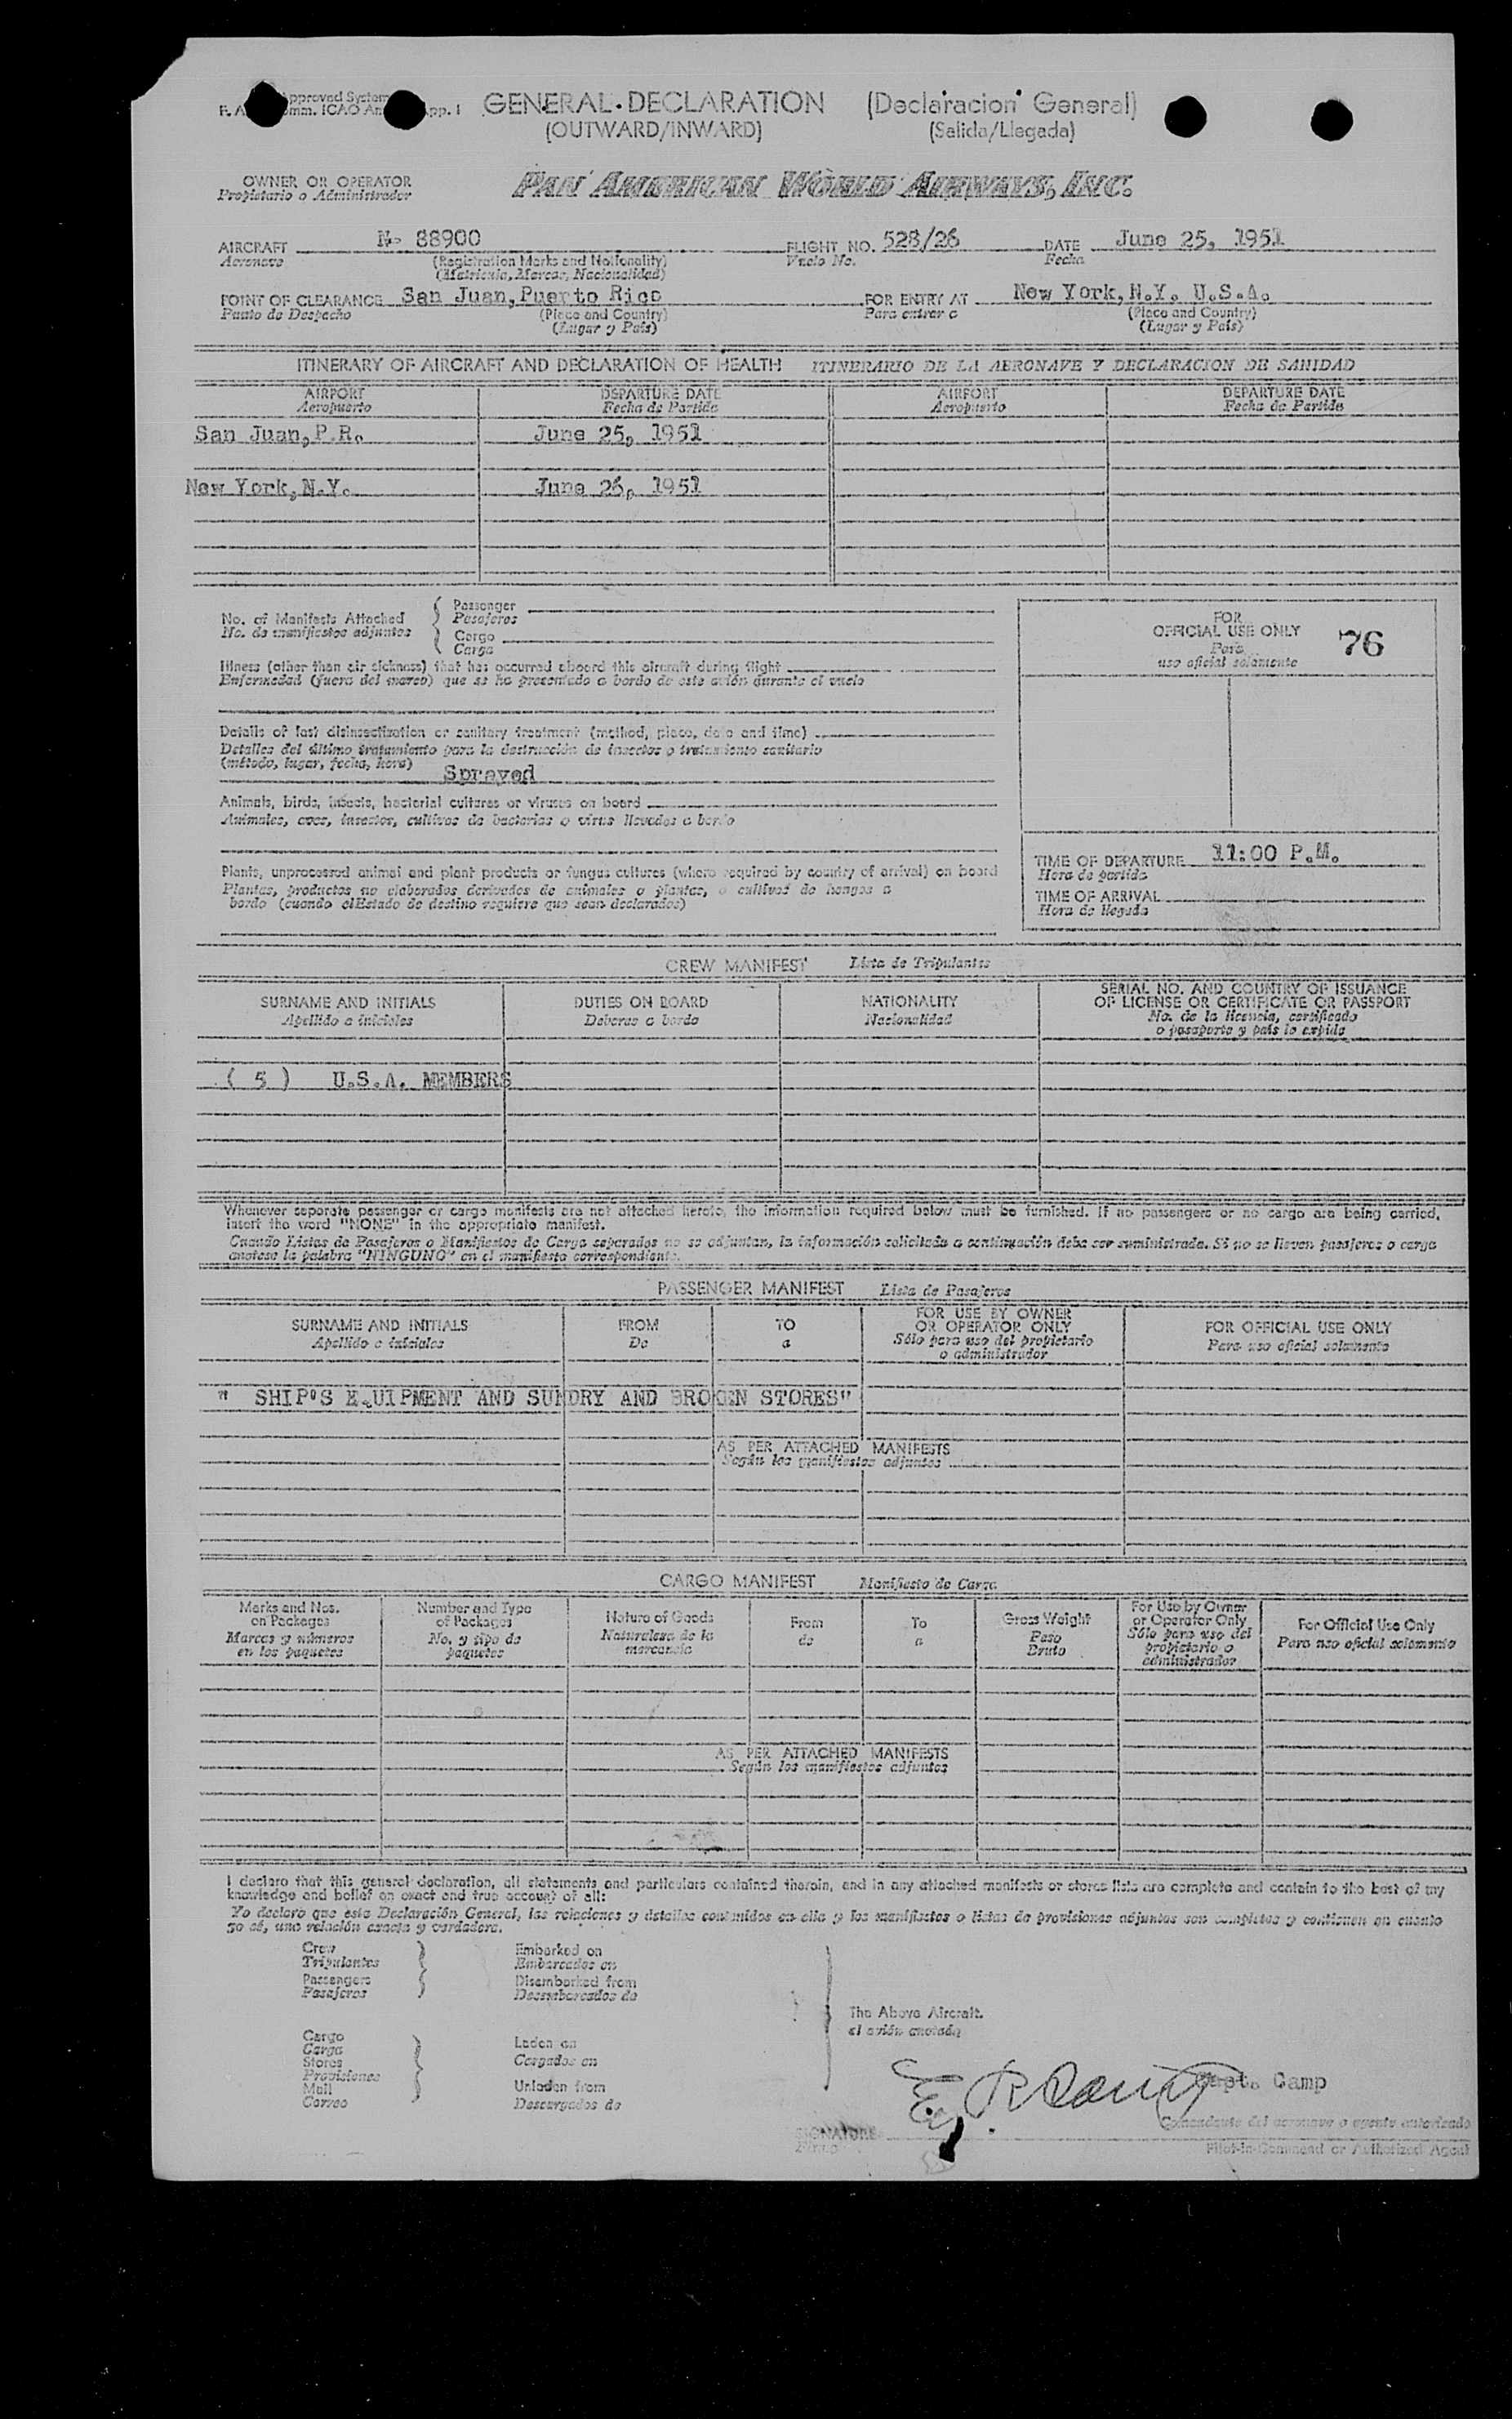 Approved System
Comm. ICAO App. 1
GENERAL DECLARATION (Declaracion General)
(OUTWARD/INWARD) (Salida/Llegada)
OWNER OR OPERATOR
Propietario o Administrador
PAN AMERICAN WORLD AIRWAYS, INC.
AIRCRAFT N- 88900 FLIGHT NO. 528/26 DATE June 25, 1951
Aeronave (Registration Marks and Nationality) Vuelo No. Fecha
(Matricula, Marcas, Nacionalidad)
POINT OF CLEARANCE San Juan, Puerto Rico FOR ENTRY AT New York, N.Y. U.S.A.
Punto de Despacho (Place and Country) Para entrar a (Place and Country)
(Lugar y País) (Lugar y País)
ITINERARY OF AIRCRAFT AND DECLARATION OF HEALTH ITINERARIO DE LA AERONAVE Y DECLARACION DE SANIDAD
AIRPORT DEPARTURE DATE AIRPORT DEPARTURE DATE
Aeropuerto Fecha de Partida Aeropuerto Fecha de Partida
San Juan, P.R. June 25, 1951
New York, N.Y. June 26, 1951
No. of Manifests Attached
No. de manifiestos adjuntos
Passenger
Pasajeros
Cargo
Carga
Illness (other than air sickness) that has occurred aboard this aircraft during flight
Enfermedad (fuera del mareo) que se ha presentado a bordo de este avión durante el vuelo
Details of last disinsectization or sanitary treatment (method, place, date and time)
Detalles del último tratamiento para la destrucción de insectos o tratamiento sanitario
(método, lugar, fecha, hora)
Sprayed
Animals, birds, insects, bacterial cultures or viruses on board
Animales, aves, insectos, cultivos de bacterias o virus llevados a bordo
Plants, unprocessed animal and plant products or fungus cultures (where required by country of arrival) on board
Plantas, productos no elaborados derivados de animales o plantas, o cultivos de hongos a
bordo (cuando el Estado de destino requiere que sean declarados)
FOR
OFFICIAL USE ONLY
Para
uso oficial solamente
76
TIME OF DEPARTURE 11:00 P.M.
Hora de partida
TIME OF ARRIVAL
Hora de llegada
CREW MANIFEST Lista de Tripulantes
SURNAME AND INITIALS DUTIES ON BOARD NATIONALITY SERIAL NO. AND COUNTRY OF ISSUANCE
OF LICENSE OR CERTIFICATE OR PASSPORT
Apellido e iniciales Deberes a bordo Nacionalidad No. de la licencia, certificado
o pasaporte y país lo expide
( 5 ) U.S.A. MEMBERS
Whenever separate passenger or cargo manifests are not attached hereto, the information required below must be furnished. If no passengers or no cargo are being carried,
insert the word "NONE" in the appropriate manifest.
Cuando Listas de Pasajeros o Manifiestos de Carga separados no se adjuntan, la información solicitada a continuación debe ser suministrada. Si no se llevan pasajeros o carga
anotese la palabra "NINGUNO" en el manifiesto correspondiente.
PASSENGER MANIFEST Lista de Pasajeros
SURNAME AND INITIALS FROM TO FOR USE BY OWNER
OR OPERATOR ONLY FOR OFFICIAL USE ONLY
Apellido e iniciales De a Sólo para uso del propietario
o administrador Para uso oficial solamente
" SHIP'S EQUIPMENT AND SUNDRY AND BROKEN STORES"
AS PER ATTACHED MANIFESTS
Según los manifiestos adjuntos
CARGO MANIFEST Manifiesto de Carga
Marks and Nos.
on Packages
Marcas y números
en los paquetes
Number and Type
of Packages
No. y tipo de
paquetes
Nature of Goods
Naturaleza de la
mercancía
From
de
To
a
Gross Weight
Peso
Bruto
For Use by Owner
or Operator Only
Sólo para uso del
propietario o
administrador
For Official Use Only
Para uso oficial solamente
AS PER ATTACHED MANIFESTS
Según los manifiestos adjuntos
I declare that this general declaration, all statements and particulars contained therein, and in any attached manifests or stores lists are complete and contain to the best of my
knowledge and belief an exact and true account of all:
Yo declaro que esta Declaración General, las relaciones y detalles contenidos en ella y los manifiestos o listas de provisiones adjuntos son completos y contienen en cuanto
yo sé, una relación exacta y verdadera.
Crew
Tripulantes
Passengers
Pasajeros
Embarked on
Embarcados en
Disembarked from
Desembarcados de
Cargo
Carga
Stores
Provisiones
Mail
Correo
Laden on
Cargados en
Unladen from
Descargados de
The Above Aircraft.
el avión anotado
E. R. Camp
Capt. Camp
Comandante del aeronave o agente autorizado
SIGNATURE
Firma
Pilot-in-Command or Authorized Agent